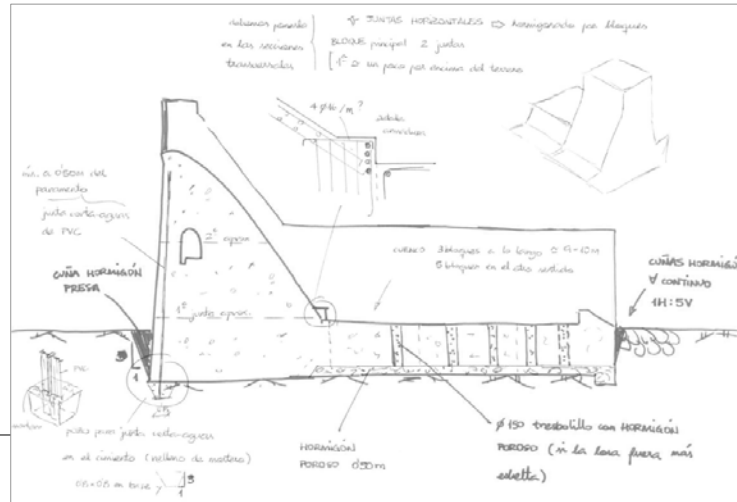 debemos ponerlo
en las secciones
transversales
JUNTAS HORIZONTALES ⇨ hormigonado por bloques
BLOQUE principal 2 juntas
1ª un poco por encima del terreno
4 Ø16/m?
mín. a 0'50m del
paramento
junta corta-aguas
de PVC
CUÑA HORMIGÓN
PRESA
2ª aprox.
1ª junta aprox.
CUENCO 3 bloques a lo largo
5 bloques en el otro sentido
CUÑAS HORMIGÓN
∀ CONTINUO
1H:5V
5
1
PVC
pozo para junta corta-aguas
en el cimiento (relleno de mortero)
5
1
HORMIGÓN
POROSO 0'50m
Ø 150 tresbolillo con HORMIGÓN
POROSO (si la losa fuera más
esbelta)